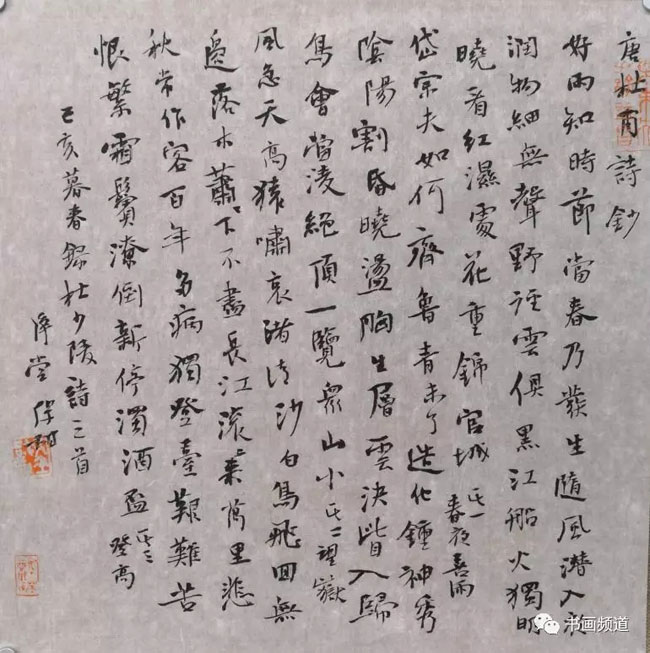 唐杜甫詩鈔
好雨知時節當春乃發生隨風潛入夜
潤物細無聲野徑雲俱黑江船火獨明
曉看紅濕處花重錦官城 其一 春夜喜雨
岱宗夫如何齊魯青未了造化鍾神秀
陰陽割昏曉盪胸生層雲決眥入歸
鳥會當凌絕頂一覽眾山小 其二 望嶽
風急天高猿嘯哀渚清沙白鳥飛回無
邊落木蕭〻下不盡長江滾〻來萬里悲
秋常作客百年多病獨登臺艱難苦
恨繁霜鬢潦倒新停濁酒盃 其三 登高
己亥暮春錄杜少陵詩三首
书画频道